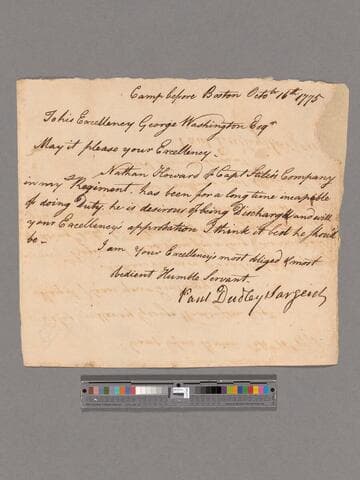 Camp before Boston Octobr 16th 1775
To his Excellency George Washington Esqr
May it please your Excellency.
Nathan Howard of Capt Stiles Company
in my Regiment, has been for a long time incapable
of doing Duty, he is desirous of being Discharged, and with
your Excellency's approbation I think it best he should
be -
I am your Excellency's most obliged & most
obedient Humble Servant.
Paul Dudley Sargent